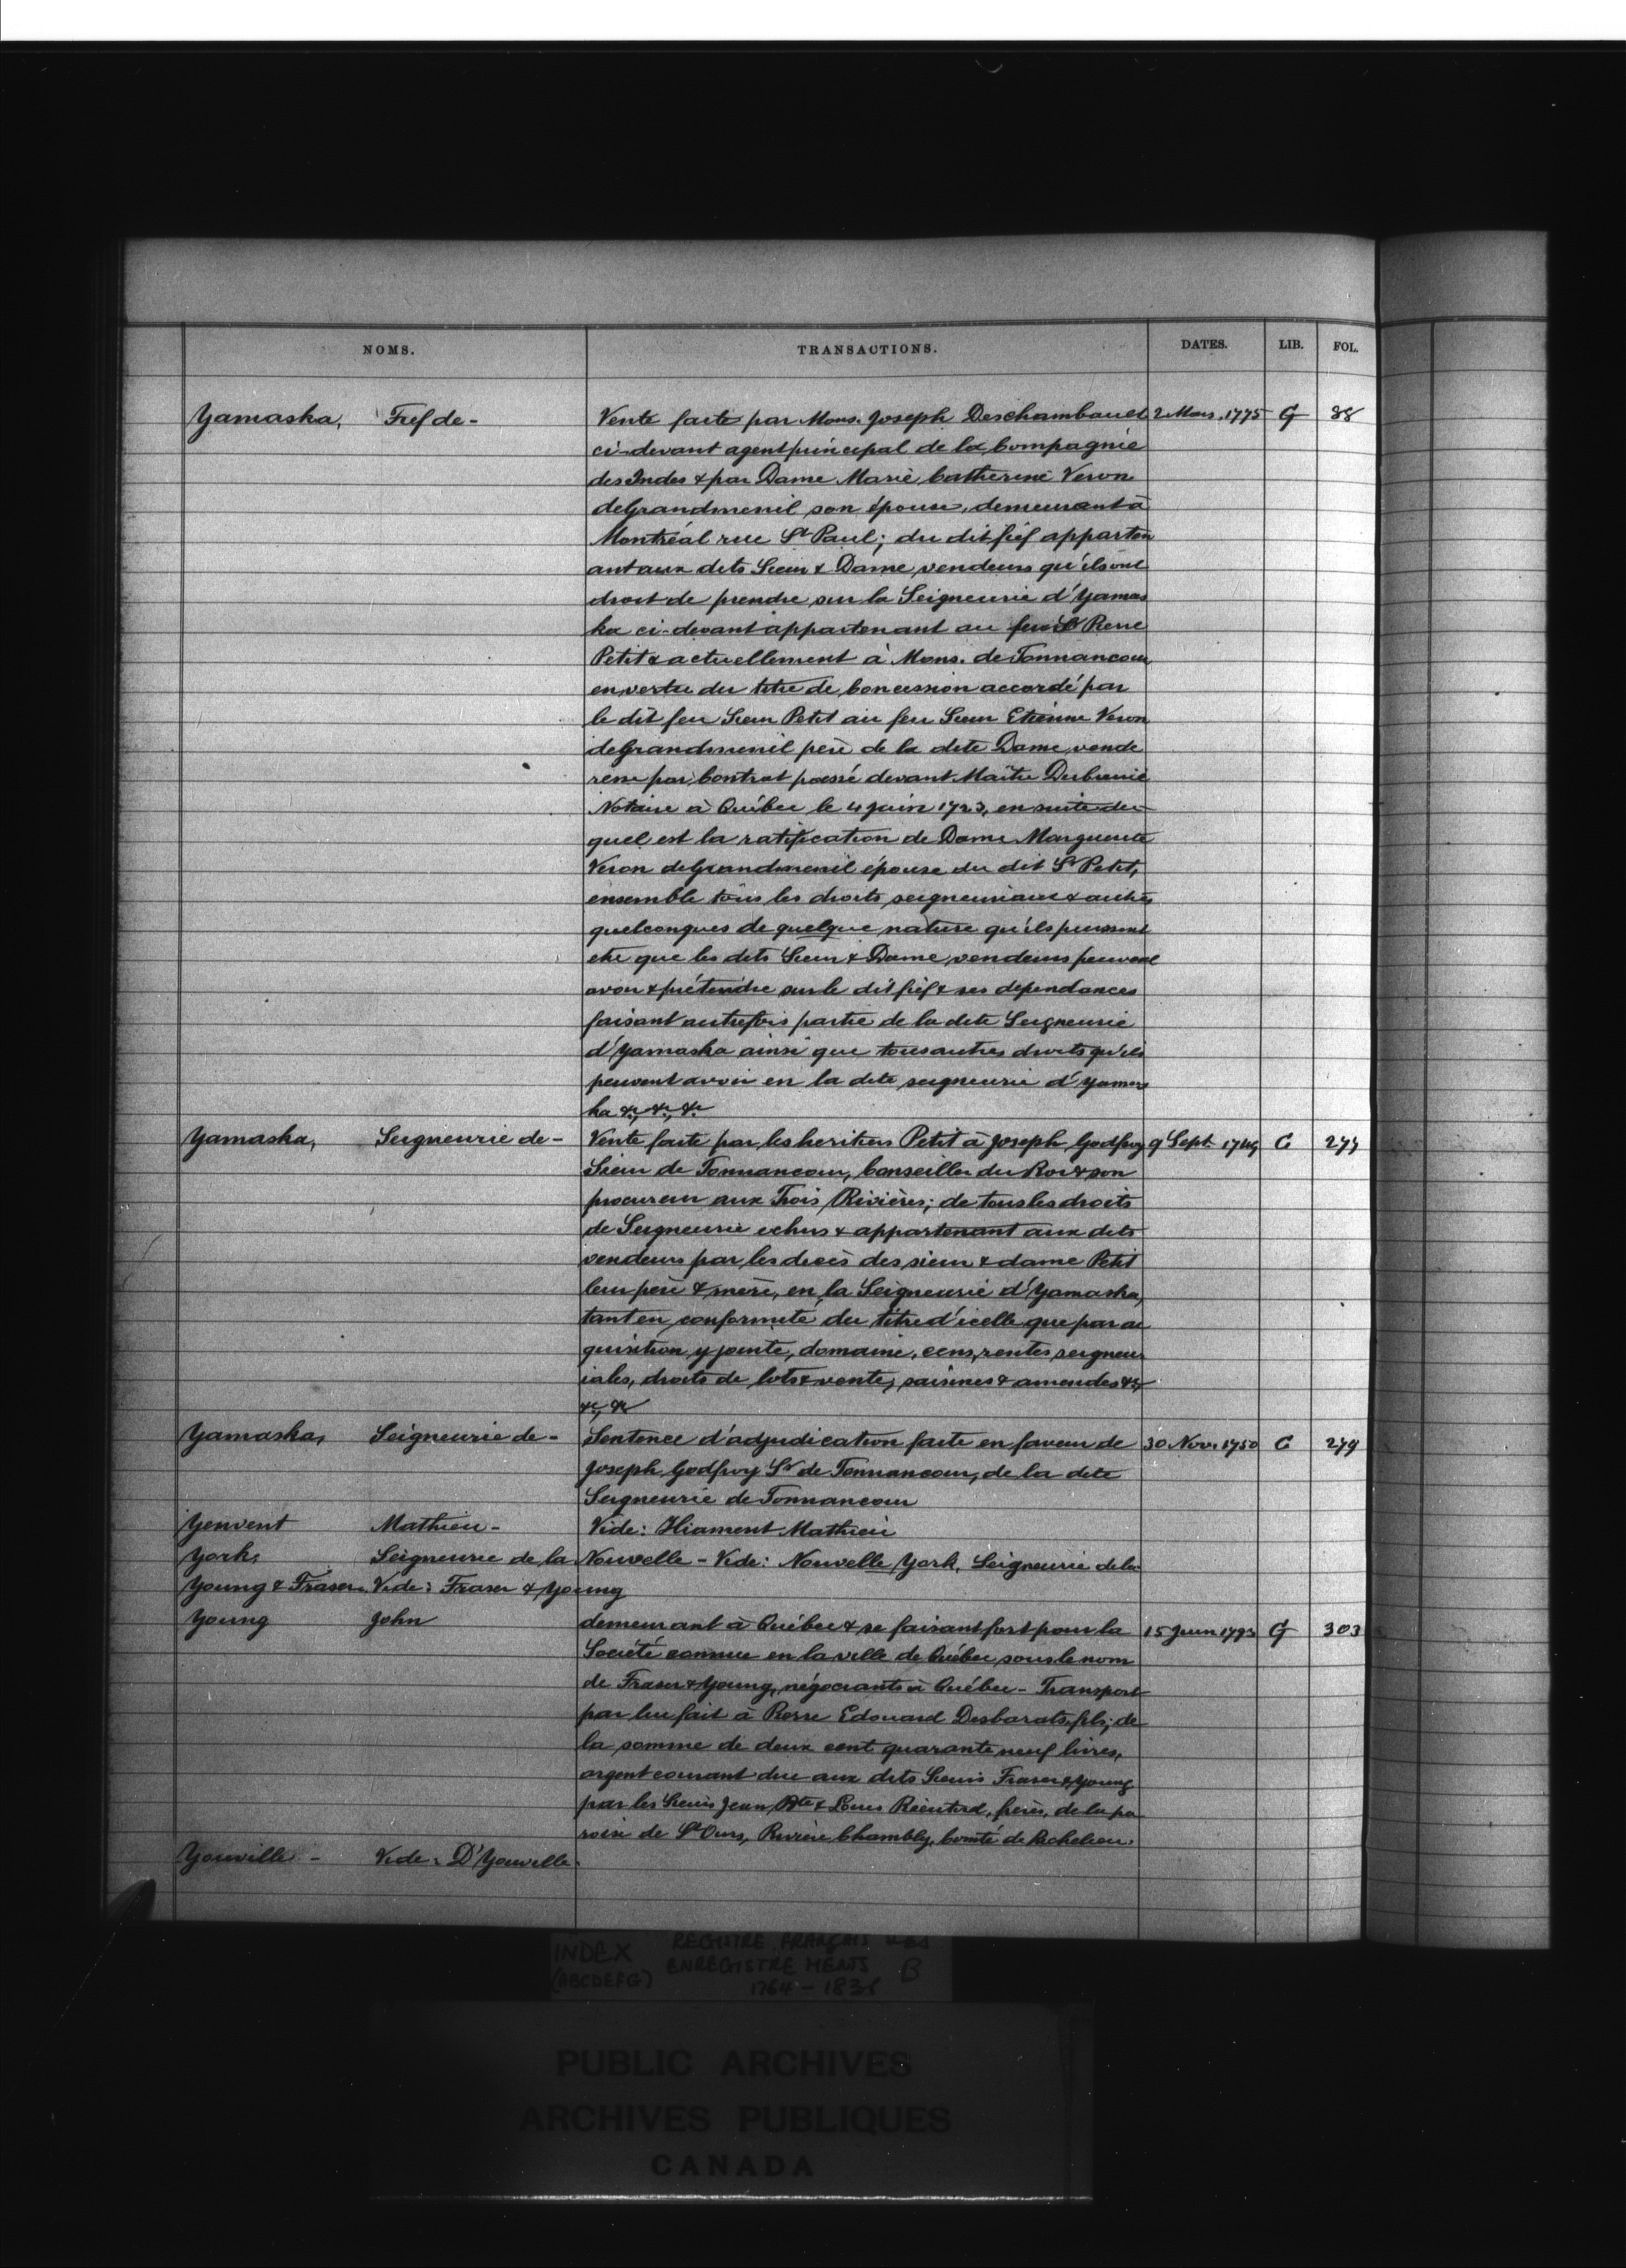 NOMS. TRANSACTIONS. DATES. LIB. FOL.
Yamaska, Fief de - Vente faite par Mons. Joseph Deschambault 2 Mars. 1775 G 38
ci-devant agent principal de la Compagnie
des Indes & par Dame Marie Catherine Veron
deGrandmenil son épouse, demeurant à
Montréal rue St Paul; du dit fief apparten
ant aux dits Sieur & Dame vendeurs qu'ils ont
droit de prendre sur la Seigneurie d'Yamas
ka ci-devant appartenant au feu Sr Pierre
Petit & actuellement à Mons. de Tonnancour
en vertu du titre de Concession accordé par
le dit feu Sieur Petit au feu Sieur Etienne Veron
deGrandmenil père de la dite Dame vende
resse par Contrat passé devant Maître Dubreuil
Notaire à Québec le 4 Juin 1723, en suite du
quel est la ratification de Dame Marguerite
Veron deGrandmenil épouse du dit Sr Petit,
ensemble tous les droits seigneuriaux & autres
quelconques de quelque nature qu'ils puissent
etre que les dits Sieur & Dame vendeurs peuvent
avoir & prétendre sur le dit fief & ses dépendances
faisant autrefois partie de la dite Seigneurie
d'Yamaska ainsi que tous autres droits qu'ils
peuvent avoir en la dite seigneurie d'Yamas
ka &c, &c, &c
Yamaska, Seigneurie de - Vente faite par les heritiers Petit à Joseph Godfroy 9 Sept. 1749 C 277
Sieur de Tonnancour, Conseiller du Roi & son
procureur aux Trois Rivières; de tous les droits
de Seigneurie echus & appartenant aux dits
vendeurs par les décès des sieur & dame Petit
leur père & mère, en la Seigneurie d'Yamaska,
tant en conformité du titre d'icelle que par ac
quisition y jointe, domaine, cens, rentes seigneur
iales, droits de lots & vente, saisines & amendes &c,
&c, &c
Yamaska, Seigneurie de - Sentence d'adjudication faite en faveur de 30 Nov. 1750 C 279
Joseph Godfroy Sr de Tonnancour, de la dite
Seigneurie de Tonnancour
Yenvent Mathieu - Vide: Hiament Mathieu
York, Seigneurie de la Nouvelle - Vide: Nouvelle York, Seigneurie dela
Young & Fraser. Vide: Fraser & Young
Young John demeurant à Québec & se faisant fort pour la 15 Juin 1793 G 303
Société connue en la ville de Québec sous le nom
de Fraser & Young, négociants à Québec - Transport
par lui fait à Pierre Edouard Desbarats fils; de
la somme de deux cent quarante neuf livres,
argent courant due aux dits Sieurs Fraser & Young
par les Sieurs Jean Bte & Louis frères, de la pa
roise de St Ours, Rivière Chambly, Comté de Richelieu.
Youville - Vide: D'Youville.
INDEX REGISTRE FRANÇAIS DES
(ABCDEFG) ENREGISTREMENTS B
1764 - 1836
PUBLIC ARCHIVES
ARCHIVES PUBLIQUES
CANADA